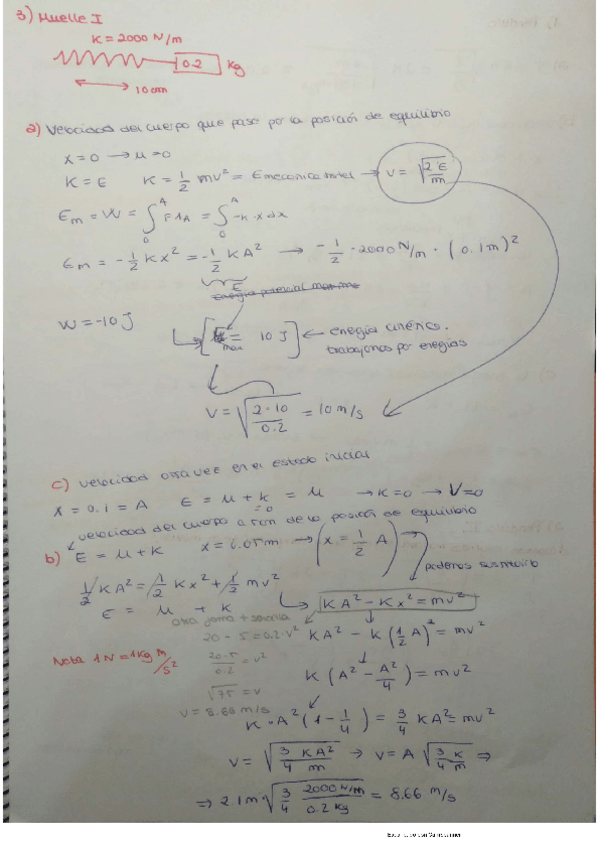 3) Muelle I
K = 2000 N/m
0.2 kg
10 cm
a) Velocidad del cuerpo que pasa por la posición de equilibrio
x = 0 → μ = 0
K = E   K = 1/2 mv² = E mecanica total → v = √(2E/m)
Em = W = ∫₀ᴬ F dA = ∫₀ᴬ -k·x dx
Em = -1/2 Kx² = -1/2 KA² → -1/2 · 2000 N/m · (0.1m)²
E
W = -10 J
[E max = 10 J] ← energía cinética.
trabajamos por energías
v = √(2·10/0.2) = 10 m/s
c) velocidad otra vez en el estado inicial
x = 0.1 = A   E = μ + k = μ → K = 0 → V = 0
= 0
velocidad del cuerpo a 5cm de la posición de equilibrio
b) E = μ + K   x = 0.05m → (x = 1/2 A)
podemos sustituirlo
1/2 KA² = 1/2 Kx² + 1/2 mv²
E = μ + K
KA² - Kx² = mv²
otra forma + sencilla
20 - 5 = 0.2·v²   KA² - K(1/2 A)² = mv²
Nota 1N = 1Kg m/s²
20-5/0.2 = v²
K(A² - A²/4) = mv²
√75 = v
v = 8.66 m/s
K·A²(1 - 1/4) = 3/4 KA² = mv²
v = √(3/4 KA²/m) → v = A √(3/4 K/m) ⇒
⇒ 2.1m √(3/4 2000 N/m / 0.2 kg) = 8.66 m/s